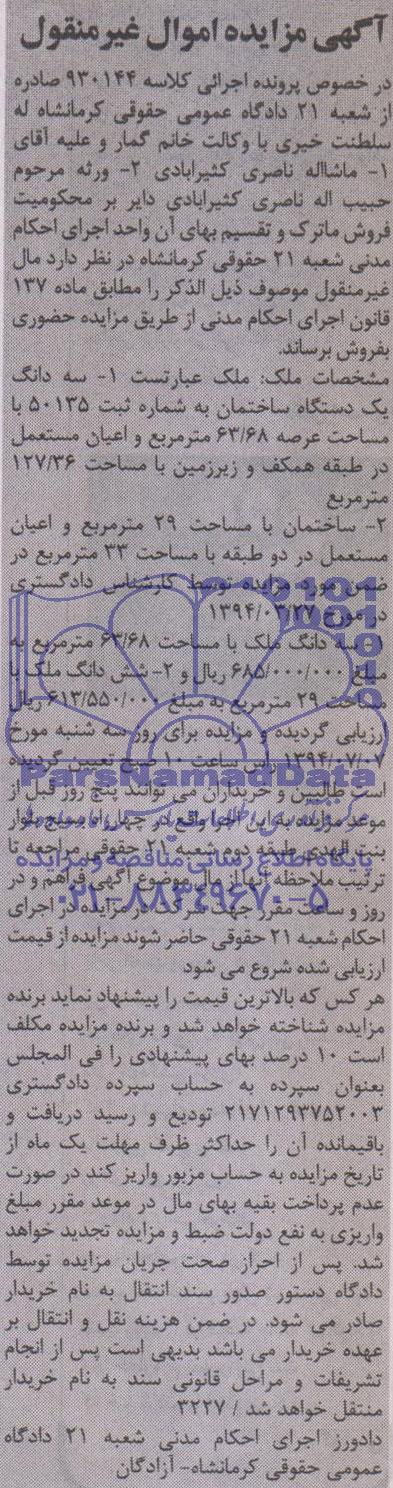 آگهی مزایده اموال غیرمنقول
در خصوص پرونده اجرائی کلاسه ۹۳۰۱۴۴ صادره
از شعبه ۲۱ دادگاه عمومی حقوقی کرمانشاه له
سلطنت خیری با وکالت خانم گمار و علیه آقای
۱- ماشااله ناصری کثیرابادی ۲- ورثه مرحوم
حبیب اله ناصری کثیرابادی دایر بر محکومیت
فروش ماترک و تقسیم بهای آن واحد اجرای احکام
مدنی شعبه ۲۱ حقوقی کرمانشاه در نظر دارد مال
غیرمنقول موصوف ذیل الذکر را مطابق ماده ۱۳۷
قانون اجرای احکام مدنی از طریق مزایده حضوری
بفروش برساند.
مشخصات ملک: ملک عبارتست ۱- سه دانگ
یک دستگاه ساختمان به شماره ثبت ۵۰۱۳۵ با
مساحت عرصه ۶۳/۶۸ مترمربع و اعیان مستعمل
در طبقه همکف و زیرزمین با مساحت ۱۲۷/۳۶
مترمربع
۲- ساختمان با مساحت ۲۹ مترمربع و اعیان
مستعمل در دو طبقه با مساحت ۳۳ مترمربع در
ضمن مورد مزایده توسط کارشناس دادگستری
در مورخ ۱۳۹۴/۰۳/۲۷
۱- سه دانگ ملک با مساحت ۶۳/۶۸ مترمربع به
مبلغ ۶۸۵/۰۰۰/۰۰۰ ریال و ۲- شش دانگ ملک با
مساحت ۲۹ مترمربع به مبلغ ۶۱۳/۵۵۰/۰۰۰ ریال
ارزیابی گردیده و مزایده برای روز سه شنبه مورخ
۱۳۹۴/۰۷/۰۷ راس ساعت ۱۰ صبح تعیین گردیده
است طالبین و خریداران می توانند پنج روز قبل از
موعد مزایده به این اجرا واقع در چهارراه بسیج بلوار
بنت الهدی طبقه دوم شعبه ۲۱ حقوقی مراجعه تا
ترتیب ملاحظه آنها از مال موضوع آگهی فراهم و در
روز و ساعت مقرر جهت شرکت در مزایده در اجرای
احکام شعبه ۲۱ حقوقی حاضر شوند مزایده از قیمت
ارزیابی شده شروع می شود
هر کس که بالاترین قیمت را پیشنهاد نماید برنده
مزایده شناخته خواهد شد و برنده مزایده مکلف
است ۱۰ درصد بهای پیشنهادی را فی المجلس
بعنوان سپرده به حساب سپرده دادگستری
۲۱۷۱۲۹۳۷۵۲۰۰۳ تودیع و رسید دریافت و
باقیمانده آن را حداکثر ظرف مهلت یک ماه از
تاریخ مزایده به حساب مزبور واریز کند در صورت
عدم پرداخت بقیه بهای مال در موعد مقرر مبلغ
واریزی به نفع دولت ضبط و مزایده تجدید خواهد
شد. پس از احراز صحت جریان مزایده توسط
دادگاه دستور صدور سند انتقال به نام خریدار
صادر می شود. در ضمن هزینه نقل و انتقال بر
عهده خریدار می باشد بدیهی است پس از انجام
تشریفات و مراحل قانونی سند به نام خریدار
منتقل خواهد شد / ۳۲۲۷
دادورز اجرای احکام مدنی شعبه ۲۱ دادگاه
عمومی حقوقی کرمانشاه- آزادگان
ParsNamadData
پایگاه اطلاع رسانی مناقصه و مزایده
۰۲۱-۸۸۳۴۹۶۷۰-۵